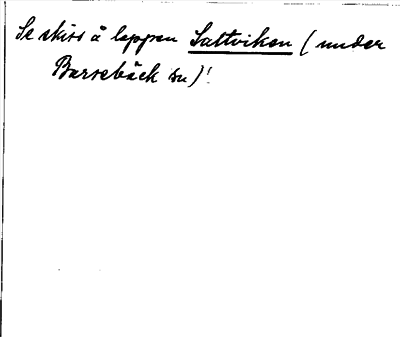 Se skiss å lappen Saltviken (under
Barsebäck sn)!